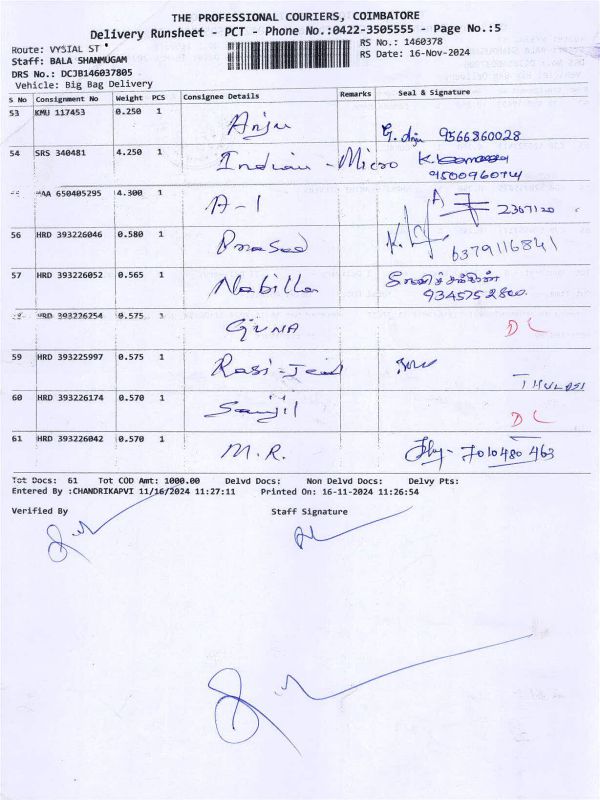 THE PROFESSIONAL COURIERS, COIMBATORE
Delivery Runsheet - PCT - Phone No.:0422-3505555 - Page No.:5
Route: VYSIAL ST
RS No.: 1460378
Staff: BALA SHANMUGAM
RS Date: 16-Nov-2024
DRS No.: DCJB146037805
Vehicle: Big Bag Delivery
S No Consignment No Weight PCS Consignee Details Remarks Seal & Signature
53 KMU 117453 0.250 1 Anju G. Anju 9566860028
54 SRS 340481 4.250 1 Indian - Micro
9500960714
MAA 650405295 4.300 1 A-1 2367120
56 HRD 393226046 0.580 1 Prasad 6379116841
57 HRD 393226052 0.565 1 Nabilla
9345752800
HRD 393226254 0.575 GUNA DL
59 HRD 393225997 0.575 1 Rasi -
THULASI
60 HRD 393226174 0.570 1 Sanjil DL
61 HRD 393226042 0.570 1 M.R. 7010480 463
Tot Docs: 61 Tot COD Amt: 1000.00 Delvd Docs: Non Delvd Docs: Delvy Pts:
Entered By :CHANDRIKAPVI 11/16/2024 11:27:11 Printed On: 16-11-2024 11:26:54
Verified By Staff Signature